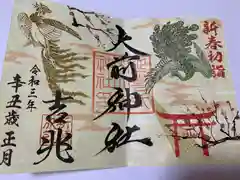 新春初詣
大前神社
吉兆
令和三年
辛丑歳正月